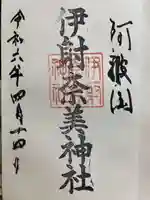 阿波国
伊射奈美神社
令和六年四月十四日